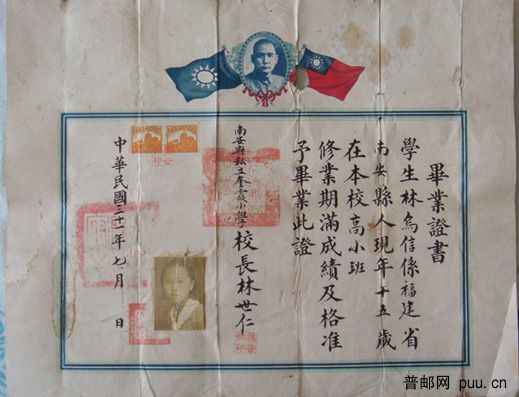 畢業證書
學生林烏信係福建省
南安縣人現年十五歲
在本校高小班
修業期滿成績及格准
予畢業此證
南安縣私立奎霞小學校長林世仁
中華民國三十一年七月 日
普邮网 puu.cn